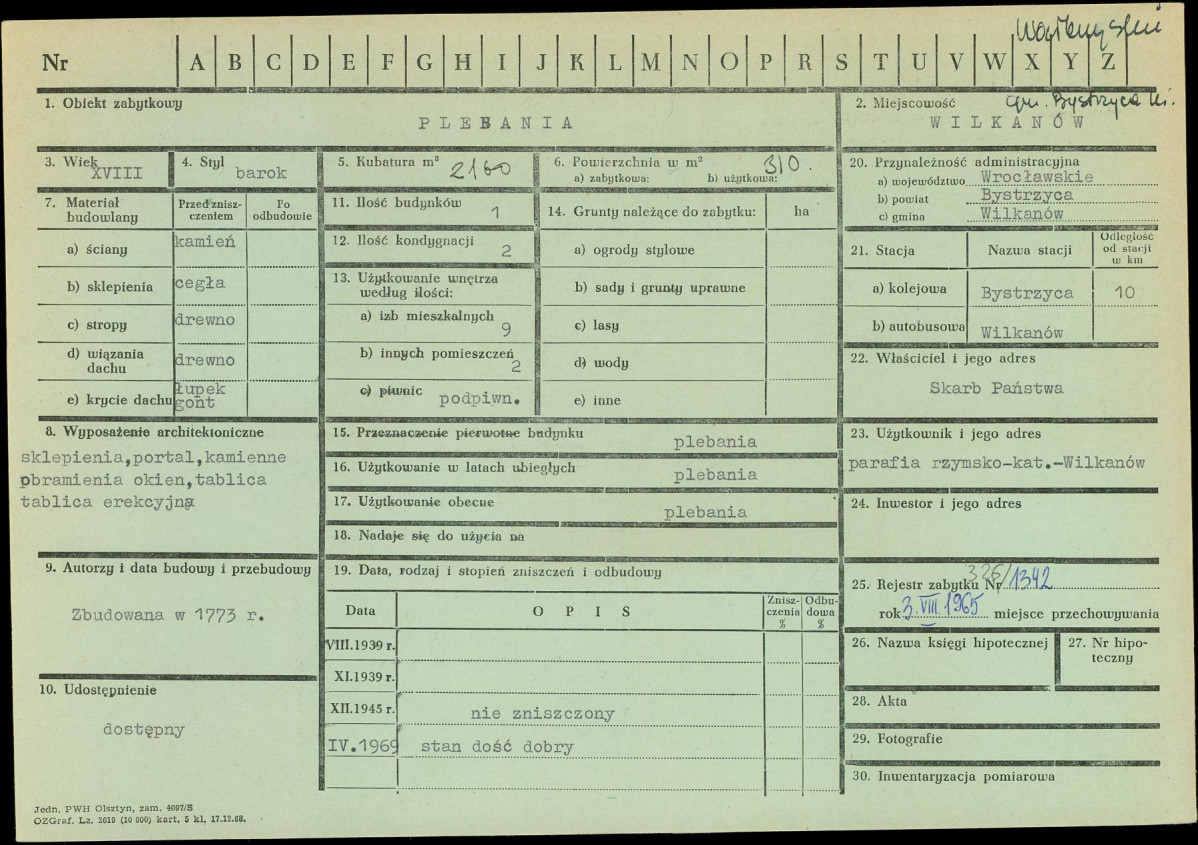 Nr A B C D E F G H I J K L M N O P R S T U V W X Y Z
1. Obiekt zabytkowy
PLEBANIA
2. Miejscowość gm. Bystrzyca Kł.
WILKANÓW
3. Wiek
XVIII
4. Styl
barok
5. Kubatura m³
2160
6. Powierzchnia w m²
310.
a) zabytkowa: b) użytkowa:
7. Materiał budowlany
Przed zniszczeniem
Po odbudowie
a) ściany kamień
b) sklepienia cegła
c) stropy drewno
d) wiązania dachu drewno
e) krycie dachu łupek gont
8. Wyposażenie architektoniczne
sklepienia,portal,kamienne
obramienia okien,tablica
tablica erekcyjna
9. Autorzy i data budowy i przebudowy
Zbudowana w 1773 r.
10. Udostępnienie
dostępny
11. Ilość budynków 1
12. Ilość kondygnacji 2
13. Użytkowanie wnętrza
według ilości:
a) izb mieszkalnych 9
b) innych pomieszczeń 2
c) piwnic podpiwn.
14. Grunty należące do zabytku: ha
a) ogrody stylowe
b) sady i grunty uprawne
c) lasy
d) wody
e) inne
15. Przeznaczenie pierwotne budynku plebania
16. Użytkowanie w latach ubiegłych plebania
17. Użytkowanie obecne plebania
18. Nadaje się do użycia na
19. Data, rodzaj i stopień zniszczeń i odbudowy
Data OPIS Zniszczenia % Odbudowa %
VIII.1939 r.
XI.1939 r.
XII.1945 r. nie zniszczony
IV.1969 stan dość dobry
20. Przynależność administracyjna
a) województwo Wrocławskie
b) powiat Bystrzyca
c) gmina Wilkanów
21. Stacja Nazwa stacji Odległość od stacji w km
a) kolejowa Bystrzyca 10
b) autobusowa Wilkanów
22. Właściciel i jego adres
Skarb Państwa
23. Użytkownik i jego adres
parafia rzymsko-kat.-Wilkanów
24. Inwestor i jego adres
25. Rejestr zabytku Nr 326/1342
rok 3.VIII.1965 miejsce przechowywania
26. Nazwa księgi hipotecznej
27. Nr hipoteczny
28. Akta
29. Fotografie
30. Inwentaryzacja pomiarowa
Jedn. PWH Olsztyn, zam. 4097/S
OZGraf. Lz. 2619 (10 000) kart. 5 kl. 17.12.68.